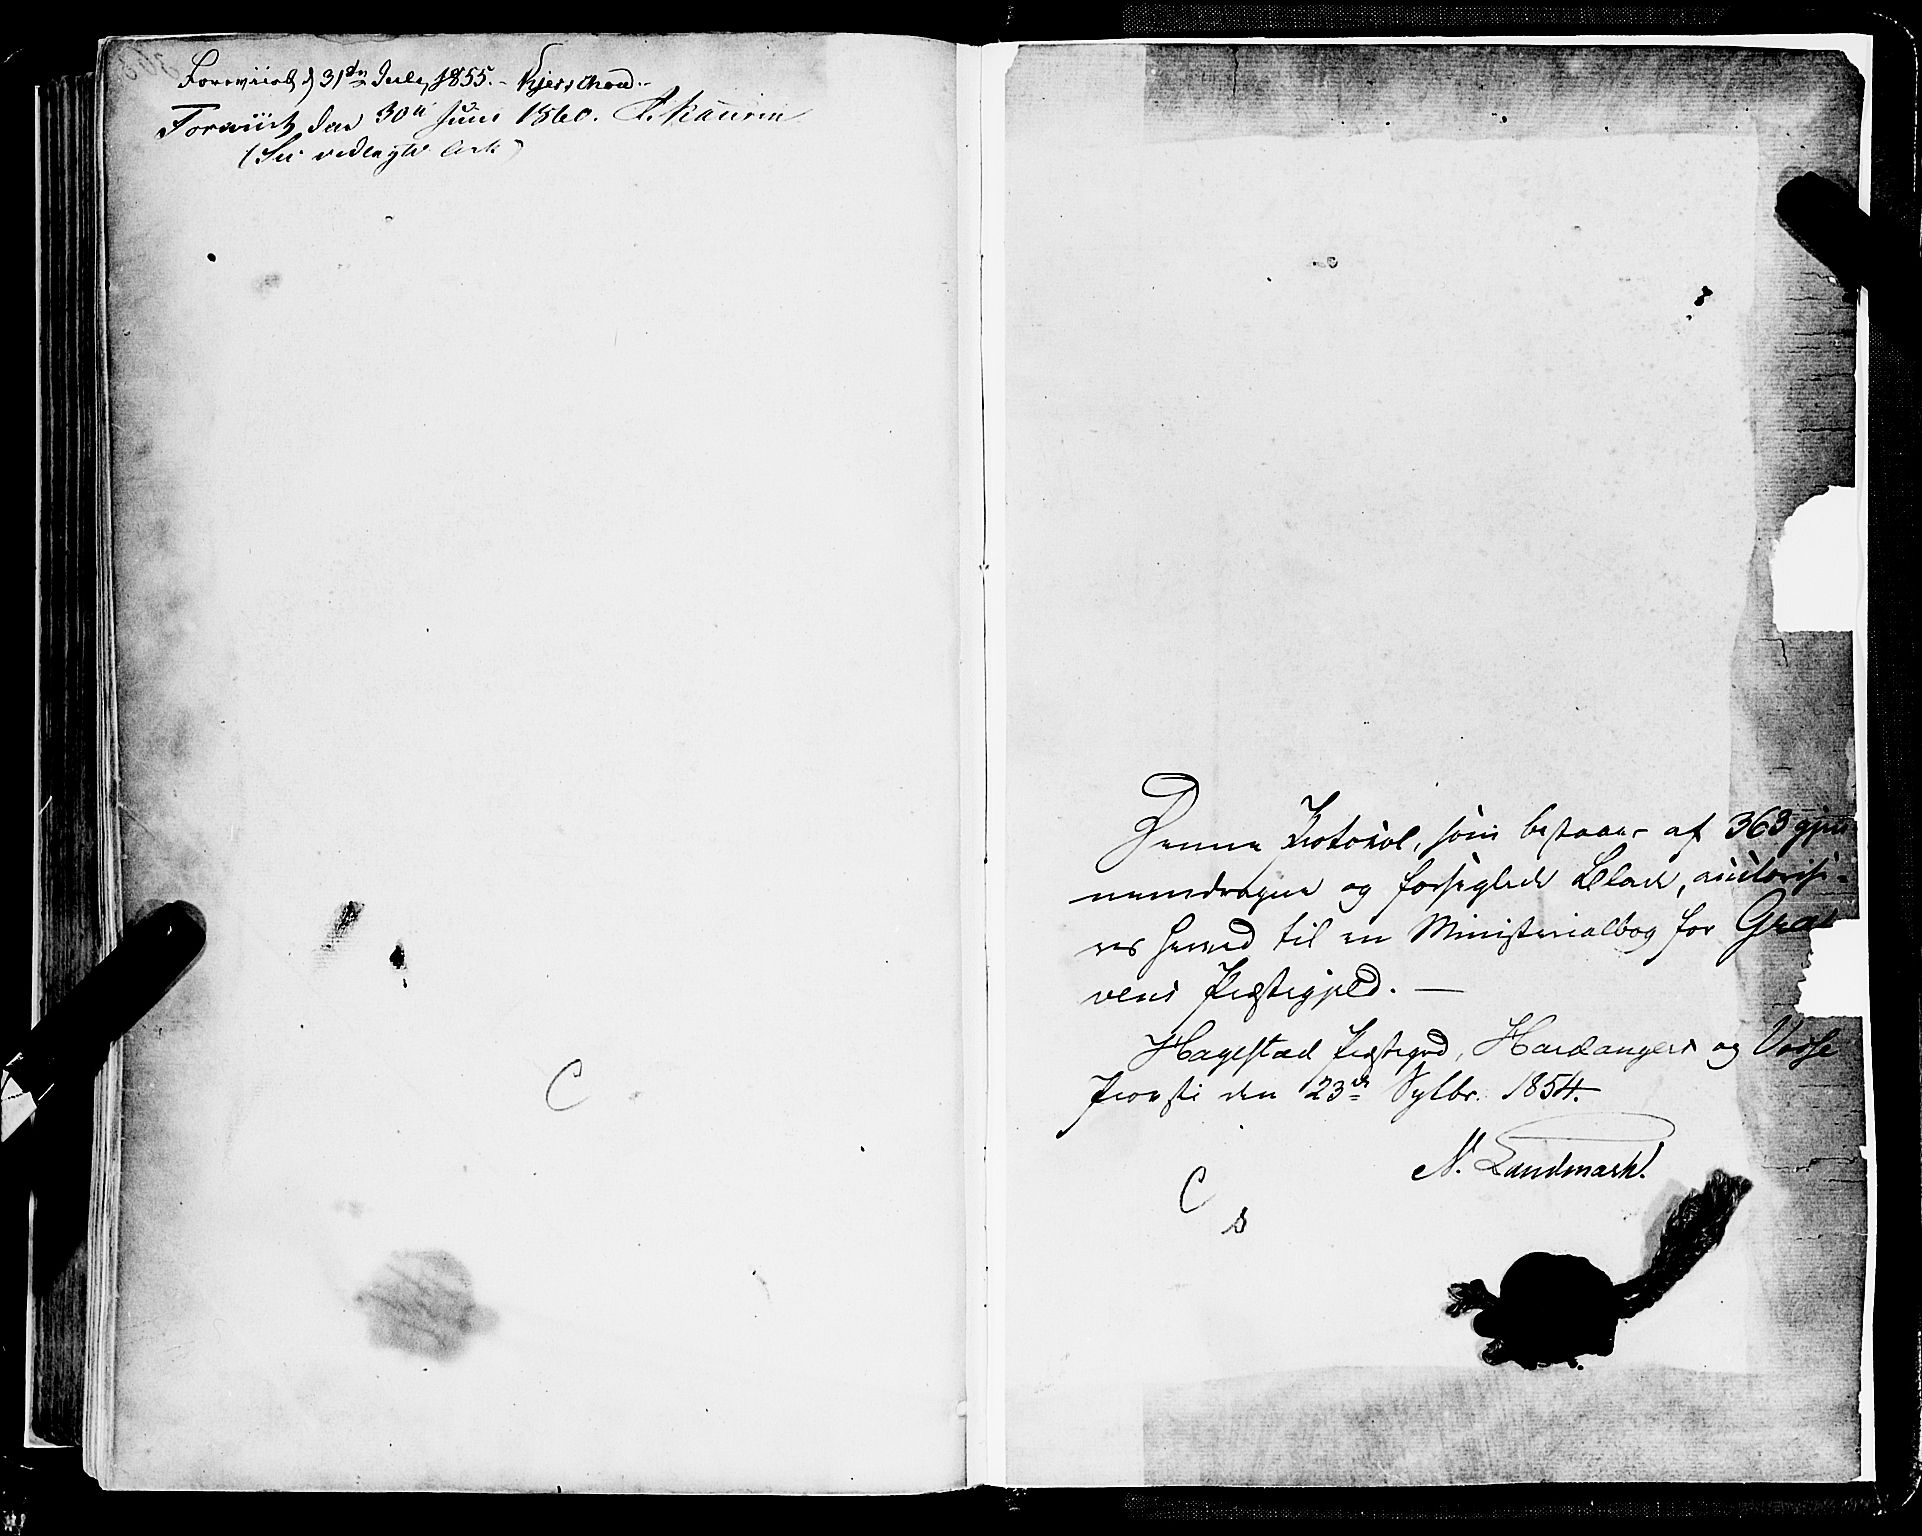 Foreviist d 31te Juli 1855. - Kjerschow -
Foreviist den 30te Juni 1860. P. Kaurin
(See vedlagte Ark)
C
Denne Protocol, som bestaaer af 363 gjen
nemdragne og forseglede Blade, autorise-
res herved til en Ministerialbog for Gra
vens Præstegjeld. —
Hagestad Præstegrd, Hardangers og Vosse
Provsti den 23de Septbr. 1854.
N. Landmark.
C